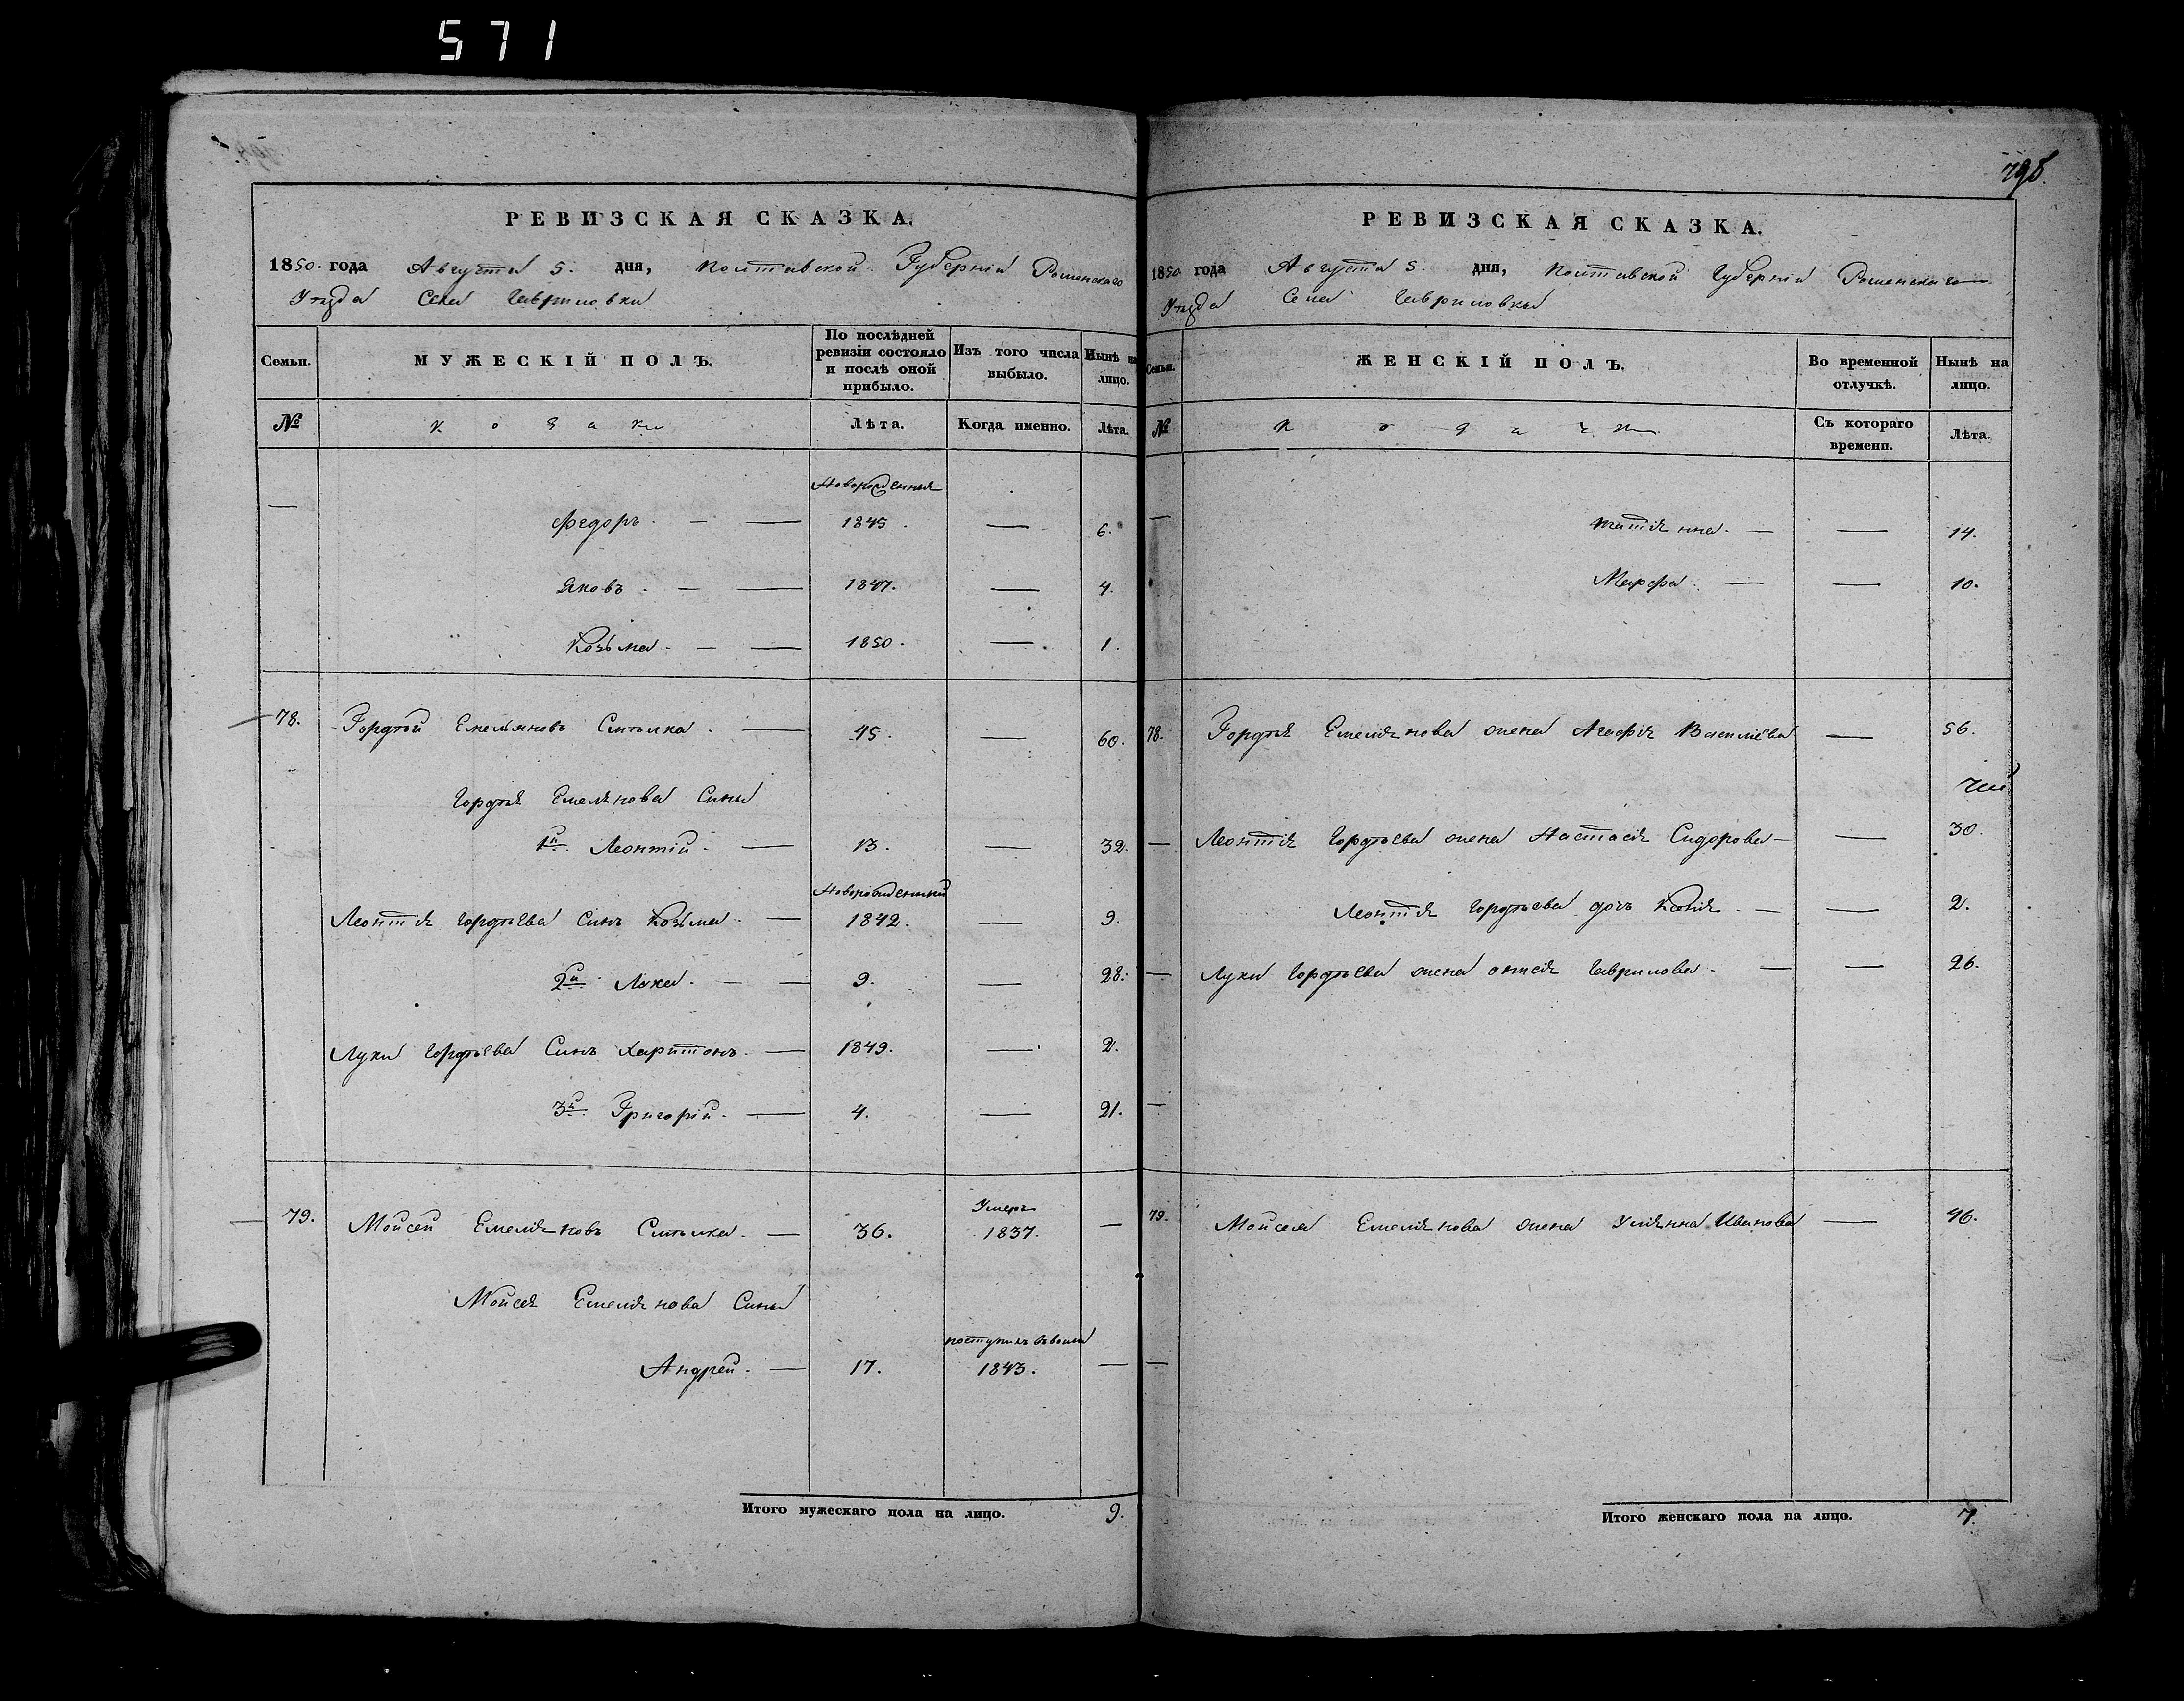 571
РЕВИЗСКАЯ СКАЗКА.
1850. года Августа 5. дня, Полтавской Губерніи Роменскаго
Уѣзда Села Гавриловки
Семьи. МУЖЕСКІЙ ПОЛЪ. По послѣдней ревизіи состояло и послѣ оной прибыло. Изъ того числа выбыло. Нынѣ на лицо.
№ Козаки Лѣта. Когда именно. Лѣта.
Новорожденные
— Федоръ. — — 1845. — 6.
Яковъ. — — 1847. — 4.
Козьма. — — 1850. — 1.
78. Гордѣй Емельяновъ Смѣлка. — 45. — 60.
Гордѣя Емелянова Сины
1й Леонтій. — 13. — 32.
Новорожденный
Леонтія Гордѣева синъ Козьма. — 1842. — 9.
2й Лука. — — 9. — 28.
Луки Гордѣева Синъ Харитонъ. — 1849. — 2.
3й Григорій. — 4. — 21.
79. Мойсей Емеліяновъ Смѣлка. — 36. Умеръ 1837. —
Мойсея Емеліянова Сины
Андрей. — 17. поступилъ 1843. —
Итого мужескаго пола на лицо. 9.
798
РЕВИЗСКАЯ СКАЗКА.
1850 года Августа 5. дня, Полтавской Губерніи Роменскаго
Уѣзда Села Гавриловки
Семьи. ЖЕНСКІЙ ПОЛЪ. Во временной отлучкѣ. Нынѣ на лицо.
№ Козачки Съ котораго времени. Лѣта.
— Татіянна. — — 14.
Марфа. — — 10.
78. Гордѣя Емеліянова жена Агафія Василіева — 56.
— Леонтія Гордѣева жена Настасія Сидорова — — 30.
Леонтія Гордѣева дочь Ксенія. — — 2.
— Луки Гордѣева жена Гаврилова. — — 26.
—
79. Мойсея Емеліянова жена Уліянна Иванова — 46.
—
Итого женскаго пола на лицо. 7.